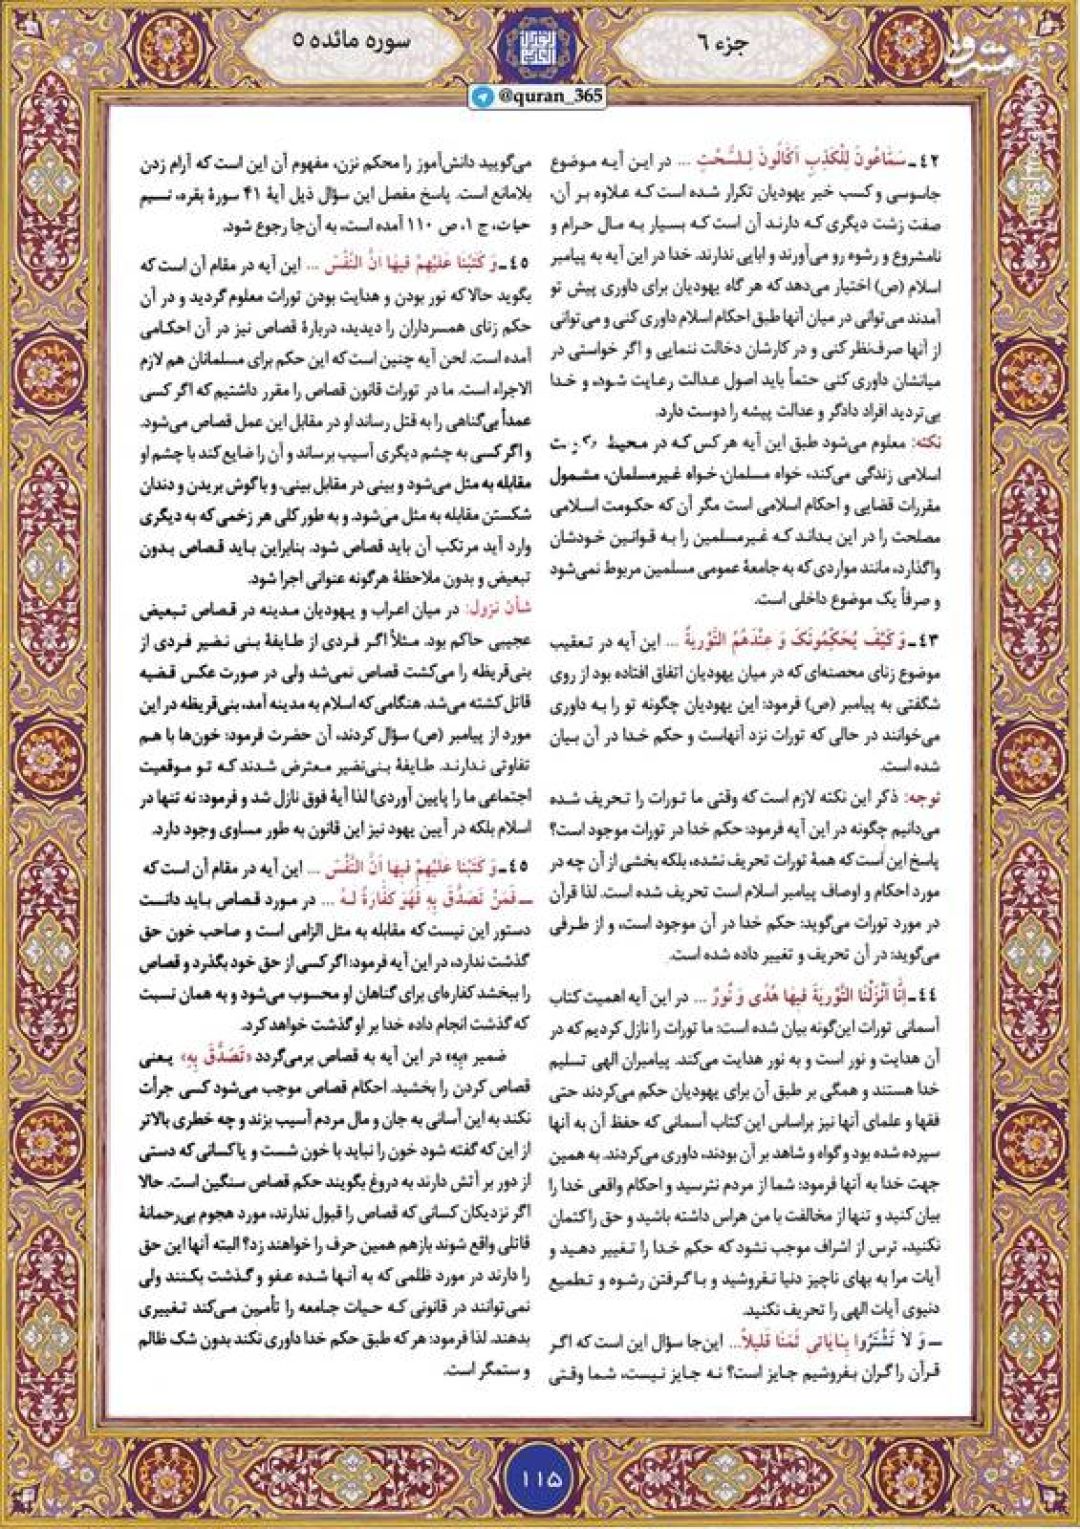 جزء ۶
سوره مائده ۵
@quran_365
مشرق
mashreghnews.ir
۴۲ـ سَمّاعُونَ لِلْکَذِبِ اَکّالُونَ لِلسُّحْتِ ... در این آیه موضوع
جاسوسی و کسب خبر یهودیان تکرار شده است که علاوه بر آن،
صفت زشت دیگری که دارند آن است که بسیار به مال حرام و
نامشروع و رشوه رو می‌آورند و ابایی ندارند. خدا در این آیه به پیامبر
اسلام (ص) اختیار می‌دهد که هر گاه یهودیان برای داوری پیش تو
آمدند می‌توانی در میان آنها طبق احکام اسلام داوری کنی و می‌توانی
از آنها صرف‌نظر کنی و در کارشان دخالت ننمایی و اگر خواستی در
میانشان داوری کنی حتماً باید اصول عدالت رعایت شود، و خدا
بی‌تردید افراد دادگر و عدالت پیشه را دوست دارد.
نکته: معلوم می‌شود طبق این آیه هر کس که در محیط
اسلامی زندگی می‌کند، خواه مسلمان، خواه غیرمسلمان، مشمول
مقررات قضایی و احکام اسلامی است مگر آن که حکومت اسلامی
مصلحت را در این بداند که غیرمسلمین را به قوانین خودشان
واگذارد، مانند مواردی که به جامعهٔ عمومی مسلمین مربوط نمی‌شود
و صرفاً یک موضوع داخلی است.
۴۳ـ وَ کَیْفَ یُحَکِّمُونَکَ وَ عِنْدَهُمُ التَّوْریةُ ... این آیه در تعقیب
موضوع زنای محصنه‌ای که در میان یهودیان اتفاق افتاده بود از روی
شگفتی به پیامبر (ص) فرمود: این یهودیان چگونه تو را به داوری
می‌خوانند در حالی که تورات نزد آنهاست و حکم خدا در آن بیان
شده است.
توجه: ذکر این نکته لازم است که وقتی ما تورات را تحریف شده
می‌دانیم چگونه در این آیه فرمود: حکم خدا در تورات موجود است؟
پاسخ این است که همهٔ تورات تحریف نشده، بلکه بخشی از آن چه در
مورد احکام و اوصاف پیامبر اسلام است تحریف شده است. لذا قرآن
در مورد تورات می‌گوید: حکم خدا در آن موجود است، و از طرفی
می‌گوید: در آن تحریف و تغییر داده شده است.
۴۴ـ اِنّا اَنْزَلْنَا التَّوْریةَ فیها هُدًی وَ نُورٌ ... در این آیه اهمیت کتاب
آسمانی تورات این‌گونه بیان شده است: ما تورات را نازل کردیم که در
آن هدایت و نور است و به نور هدایت می‌کند. پیامبران الهی تسلیم
خدا هستند و همگی بر طبق آن برای یهودیان حکم می‌کردند حتی
فقها و علمای آنها نیز براساس این کتاب آسمانی که حفظ آن به آنها
سپرده شده بود و گواه و شاهد بر آن بودند، داوری می‌کردند. به همین
جهت خدا به آنها فرمود: شما از مردم نترسید و احکام واقعی خدا را
بیان کنید و تنها از مخالفت با من هراس داشته باشید و حق را کتمان
نکنید، ترس از اشراف موجب نشود که حکم خدا را تغییر دهید و
آیات مرا به بهای ناچیز دنیا نفروشید و با گرفتن رشوه و تطمیع
دنیوی آیات الهی را تحریف نکنید.
ـ وَ لا تَشْتَرُوا بِایاتی ثَمَنًا قَلیلاً... این‌جا سؤال این است که اگر
قرآن را گران بفروشیم جایز است؟ نه جایز نیست، شما وقتی
می‌گویید دانش‌آموز را محکم نزن، مفهوم آن این است که آرام زدن
بلامانع است. پاسخ مفصل این سؤال ذیل آیهٔ ۴۱ سورهٔ بقره، نسیم
حیات، ج ۱، ص ۱۱۰ آمده است، به آن‌جا رجوع شود.
۴۵ـ وَ کَتَبْنا عَلَیْهِمْ فیها اَنَّ النَّفْسَ ... این آیه در مقام آن است که
بگوید حالا که نور بودن و هدایت بودن تورات معلوم گردید و در آن
حکم زنای همسرداران را دیدید، دربارهٔ قصاص نیز در آن احکامی
آمده است. لحن آیه چنین است که این حکم برای مسلمانان هم لازم
الاجراء است. ما در تورات قانون قصاص را مقرر داشتیم که اگر کسی
عمداً بی‌گناهی را به قتل رساند او در مقابل این عمل قصاص می‌شود.
و اگر کسی به چشم دیگری آسیب برساند و آن را ضایع کند با چشم او
مقابله به مثل می‌شود و بینی در مقابل بینی، و با گوش بریدن و دندان
شکستن مقابله به مثل می‌شود. و به طور کلی هر زخمی که به دیگری
وارد آید مرتکب آن باید قصاص شود. بنابراین باید قصاص بدون
تبعیض و بدون ملاحظهٔ هرگونه عنوانی اجرا شود.
شأن نزول: در میان اعراب و یهودیان مدینه در قصاص تبعیض
عجیبی حاکم بود. مثلاً اگر فردی از طایفهٔ بنی نضیر فردی از
بنی‌قریظه را می‌کشت قصاص نمی‌شد ولی در صورت عکس قضیه
قاتل کشته می‌شد. هنگامی که اسلام به مدینه آمد، بنی‌قریظه در این
مورد از پیامبر (ص) سؤال کردند، آن حضرت فرمود: خون‌ها با هم
تفاوتی ندارند. طایفهٔ بنی‌نضیر معترض شدند که تو موقعیت
اجتماعی ما را پایین آوردی! لذا آیهٔ فوق نازل شد و فرمود: نه تنها در
اسلام بلکه در آیین یهود نیز این قانون به طور مساوی وجود دارد.
۴۵ـ وَ کَتَبْنا عَلَیْهِمْ فیها اَنَّ النَّفْسَ ... این آیه در مقام آن است که
ـ فَمَنْ تَصَدَّقَ بِهِ فَهُوَ کَفّارَةٌ لَهُ ... در مورد قصاص باید دانست
دستور این نیست که مقابله به مثل الزامی است و صاحب خون حق
گذشت ندارد، در این آیه فرمود: اگر کسی از حق خود بگذرد و قصاص
را ببخشد کفاره‌ای برای گناهان او محسوب می‌شود و به همان نسبت
که گذشت انجام داده خدا بر او گذشت خواهد کرد.
ضمیر «بِهِ» در این آیه به قصاص برمی‌گردد «تَصَدَّقَ بِهِ» یعنی
قصاص کردن را بخشید. احکام قصاص موجب می‌شود کسی جرأت
نکند به این آسانی به جان و مال مردم آسیب بزند و چه خطری بالاتر
از این که گفته شود خون را نباید با خون شست و یا کسانی که دستی
از دور بر آتش دارند به دروغ بگویند حکم قصاص سنگین است. حالا
اگر نزدیکان کسانی که قصاص را قبول ندارند، مورد هجوم بی‌رحمانهٔ
قاتلی واقع شوند بازهم همین حرف را خواهند زد؟ البته آنها این حق
را دارند در مورد ظلمی که به آنها شده عفو و گذشت بکنند ولی
نمی‌توانند در قانونی که حیات جامعه را تأمین می‌کند تغییری
بدهند. لذا فرمود: هر که طبق حکم خدا داوری نکند بدون شک ظالم
و ستمگر است.
۱۱۵